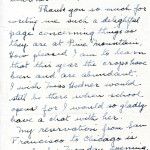 Thank you so much for
writing me such a delightful
page concerning things as
they are at Pine Mountain.
How pleased I am to learn
that this year the crops have
been and are abundant.
I wish Miss Gedner would
still be there when school
opens for I would so gladly
have a chat with her.
My reservation from San
Francisco to Chicago is
evening,